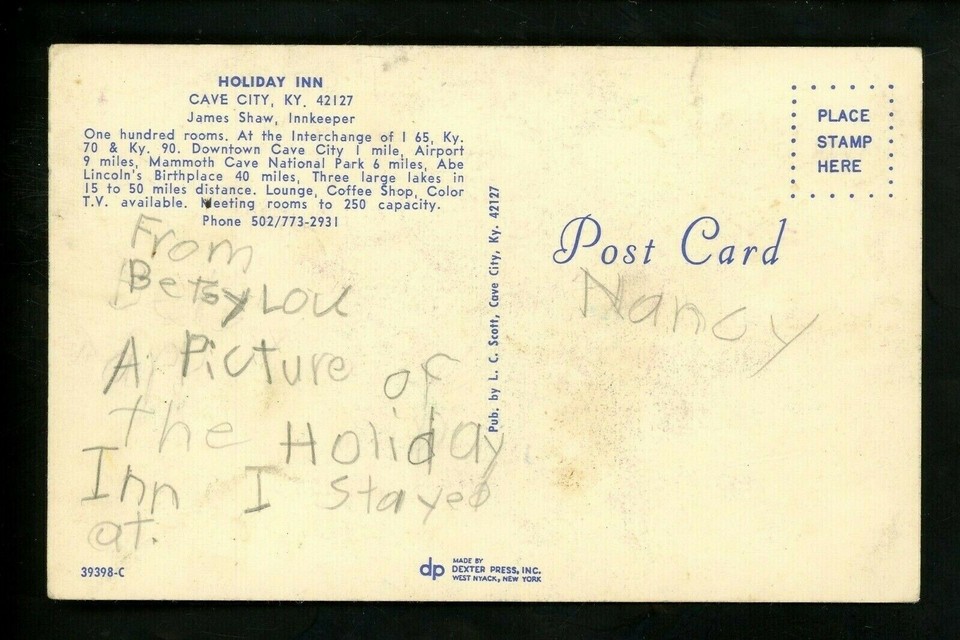 HOLIDAY INN
CAVE CITY, KY. 42127
James Shaw, Innkeeper
One hundred rooms. At the Interchange of I 65, Ky.
70 & Ky. 90. Downtown Cave City 1 mile, Airport
9 miles, Mammoth Cave National Park 6 miles, Abe
Lincoln's Birthplace 40 miles, Three large lakes in
15 to 50 miles distance. Lounge, Coffee Shop, Color
T.V. available. Meeting rooms to 250 capacity.
Phone 502/773-2931
From
Betsy Lou
A Picture of
the Holiday
Inn I Stayed
at.
39398-C
Pub. by L. C. Scott, Cave City, Ky. 42127
dp
MADE BY
DEXTER PRESS, INC.
WEST NYACK, NEW YORK
PLACE
STAMP
HERE
Post Card
Nancy